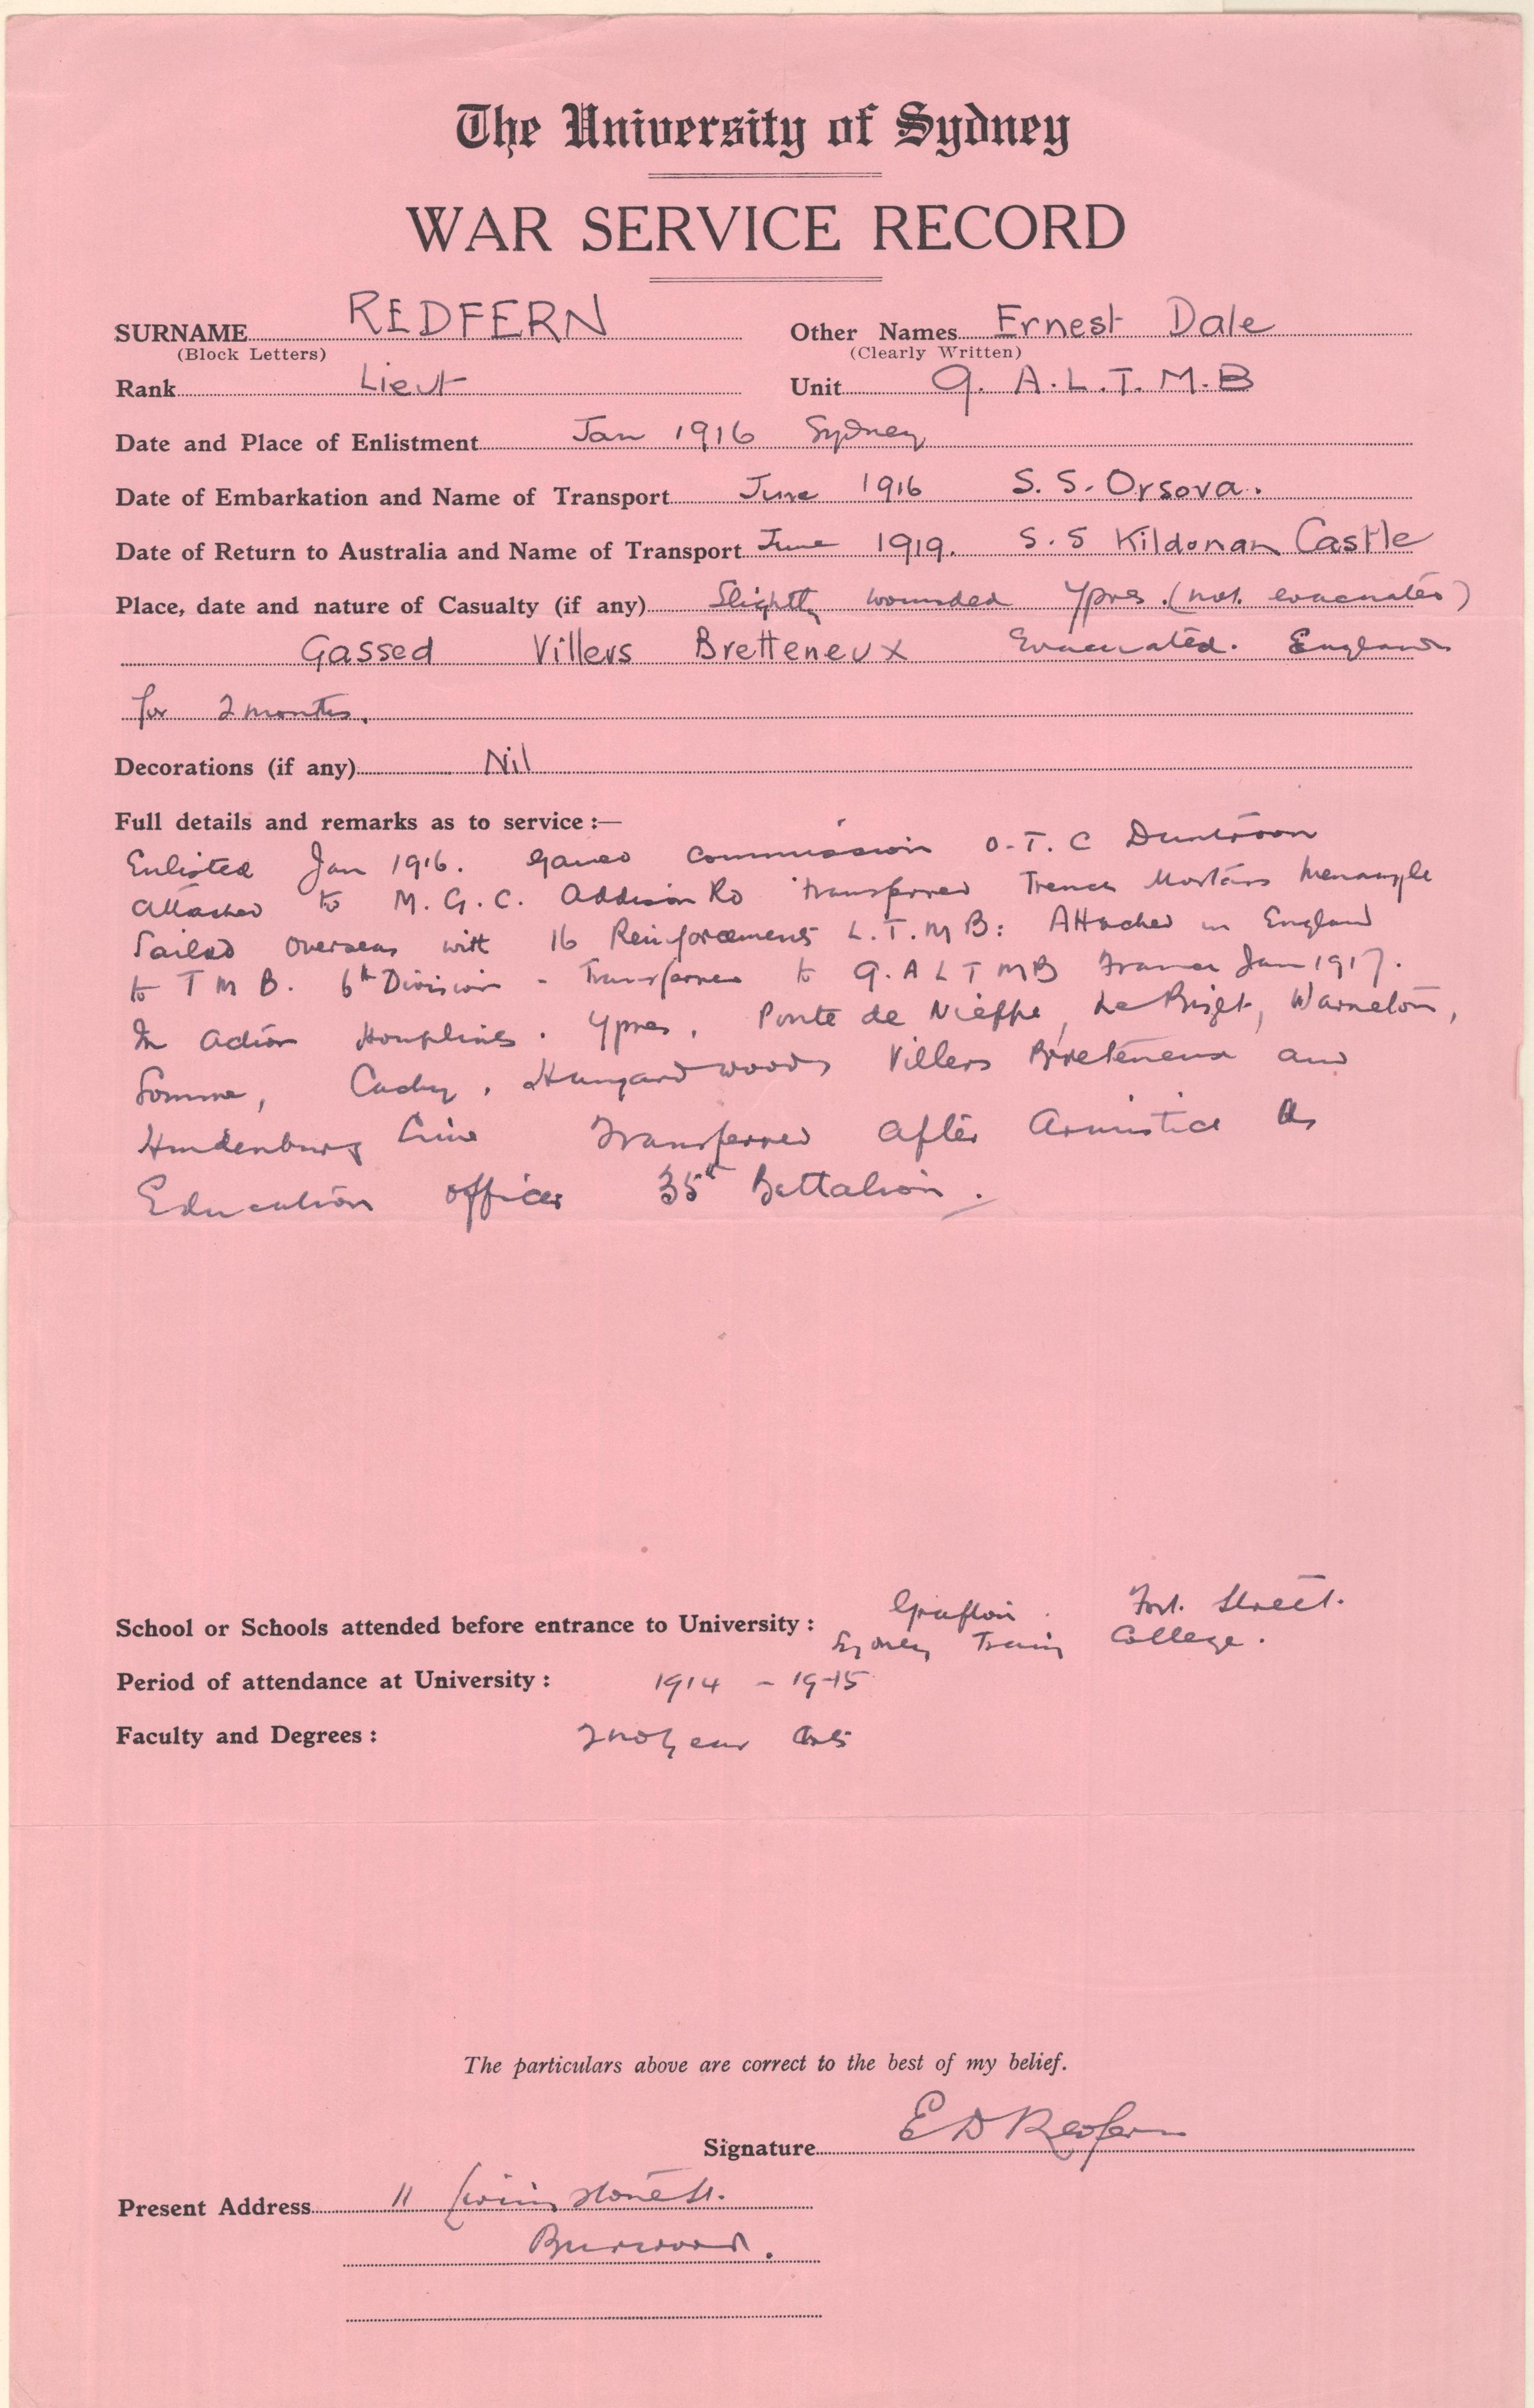 The University of Sydney
WAR SERVICE RECORD
SURNAME REDFERN Other Names Ernest Dale
(Block Letters) (Clearly Written)
Rank Lieut Unit 9. A.L.T.M.B
Date and Place of Enlistment Jan 1916 Sydney
Date of Embarkation and Name of Transport June 1916 S.S. Orsova.
Date of Return to Australia and Name of Transport June 1919. S.S Kildonan Castle
Place, date and nature of Casualty (if any) Slightly wounded Ypres. (not evacuated)
Gassed Villers Bretteneux Evacuated. England
for 2 months.
Decorations (if any) Nil
Full details and remarks as to service :—
Enlisted Jan 1916. Gained commission O.T.C Duntroon
attached to M.G.C. Addison Rd transferred Trench Mortars Menangle
Sailed overseas with 16 Reinforcements L.T.M B: Attached in England
to T M B. 6th Division - Transferred to 9. A L T M B France Jan 1917.
In action Houplines. Ypres, Ponte de Nieppe, Le Bizet, Warneton,
Somme, Cachy, Hangard woods Villers Breteneux and
Hindenburg Line Transferred after Armistice as
Education officer 35th Battalion.
School or Schools attended before entrance to University : Grafton. Fort. Street.
Sydney Train College.
Period of attendance at University : 1914 - 1915
Faculty and Degrees : 2nd year Arts
The particulars above are correct to the best of my belief.
Signature E D Redfern
Present Address 11 Livingstone St.
Burwood.